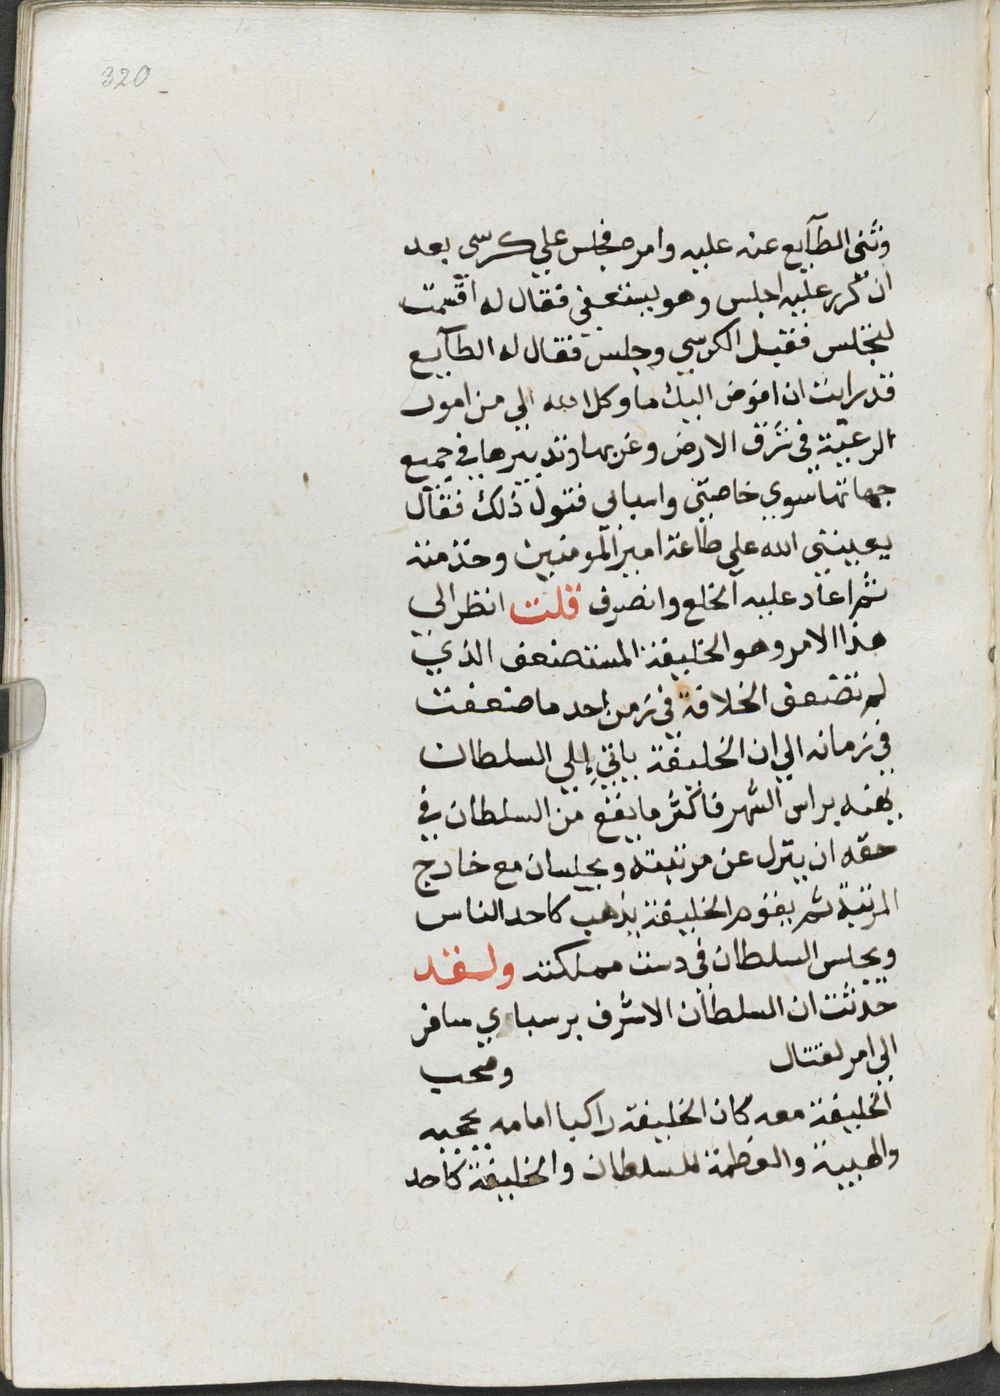 320
وثنى الطآيع عنه عليه وامره فجلس علي كرسي بعد
ان كرر عليه اجلس وهو يستعفي فقال له اقسمت
لتجلس فقبل الكرسي وجلس فقال له الطآيع
قد رايت ان افوض اليك ما وكل الله الي من امور
الرعية في شرق الارض وغربها وتدبيرها في جميع
جهاتها سوي خاصتي واسبابي فتول ذلك فقال
يعينني الله علي طاعة امير المومنين وخذمته
ثم اعاد عليه الخلع وانصرف قلت انظر الي
هذا الامر وهو الخليفة المستضعف الذي
لم تضعف الخلافة في زمن احد ما ضعفت
في زمانه الي ان الخليفة ياتي الي السلطان
يهنه براس الشهر فاكثر ما يقع من السلطان في
حقه ان ينزل عن مرتبته ويجلسان مع خارج
المرتبة ثم يقوم الخليفة يذهب كاحد الناس
ويجلس السلطان في دست مملكته ولقد
حدثت ان السلطان الاشرف برسباي سافر
الي امر لقتال وصحب
الخليفة معه كان الخليفة راكبا امامه يحجبه
والهيبة والعظمة للسلطان والخليفة كاحد